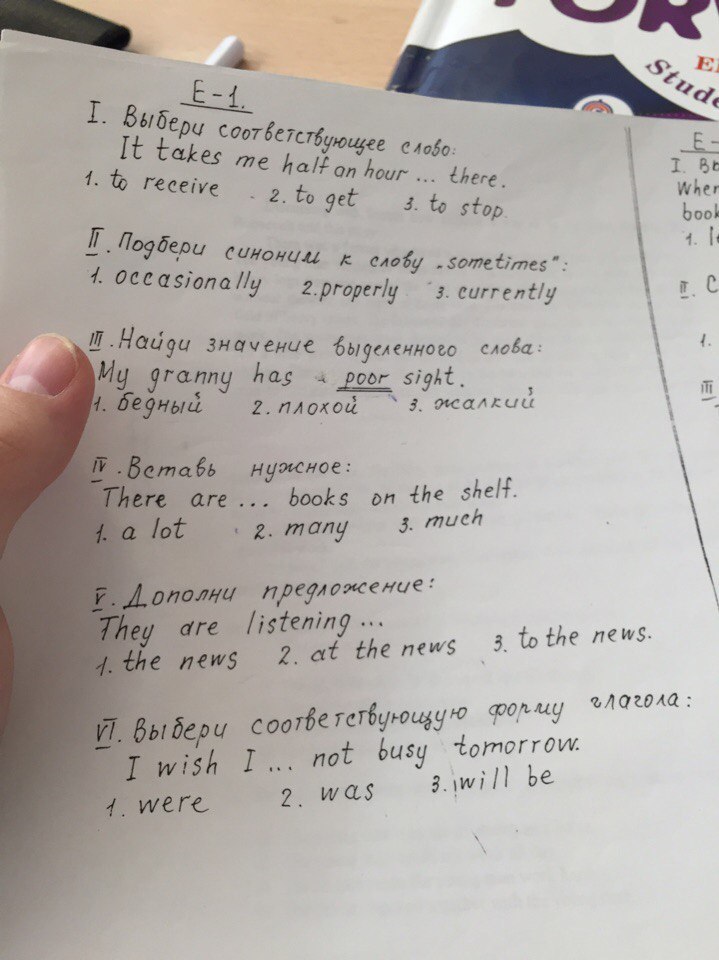 E-1.
I. Выбери соответствующее слово:
It takes me half an hour ... there.
1. to receive 2. to get 3. to stop.
II. Подбери синоним к слову „sometimes":
1. occasionally 2. properly 3. currently
III. Найди значение выделенного слова:
My granny has a poor sight.
1. бедный 2. плохой 3. жалкий
IV. Вставь нужное:
There are ... books on the shelf.
1. a lot 2. many 3. much
V. Дополни предложение:
They are listening ...
1. the news 2. at the news 3. to the news.
VI. Выбери соответствующую форму глагола:
I wish I ... not busy tomorrow.
1. were 2. was 3. will be
E-
I.
When
book
1.
II. С
1.
III
Stude